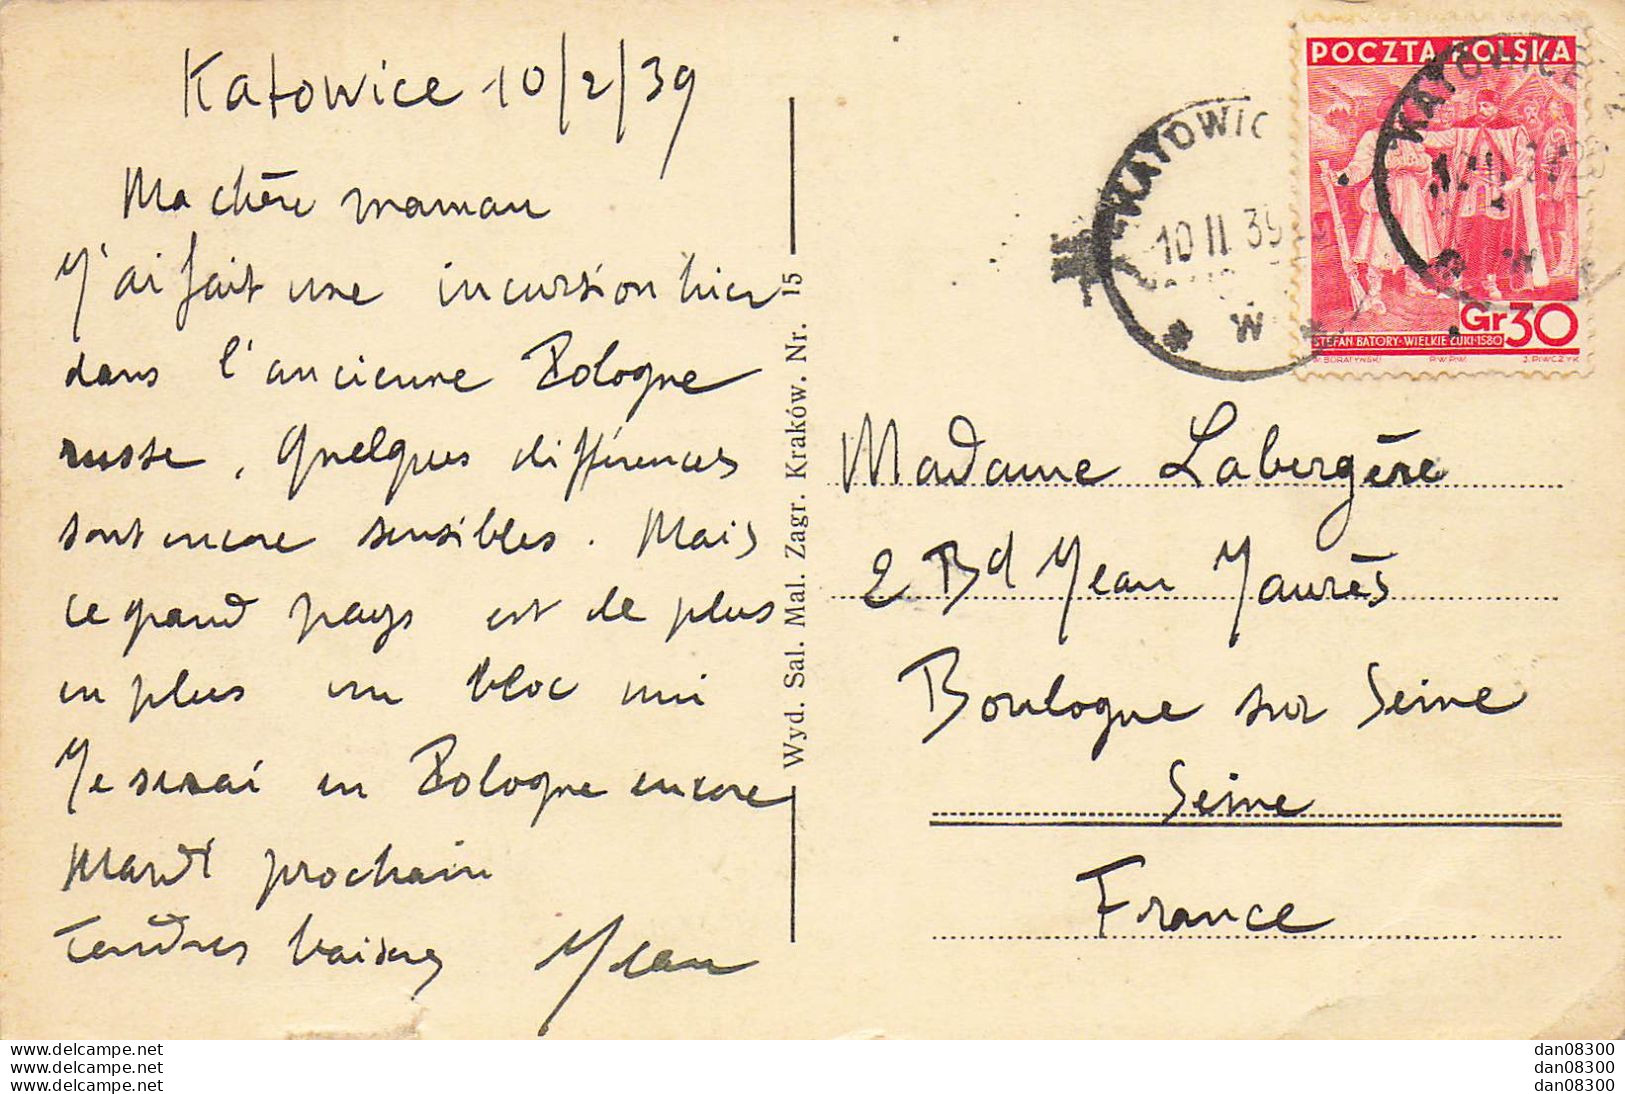 Katowice 10/2/39
Ma chère maman
J'ai fait une incursion hier
dans l'ancienne Pologne
russe, Quelques différences
sont encore sensibles. Mais
ce grand pays est de plus
en plus un bloc uni
Je serai en Pologne encore
Mardi prochain
Tendres baisers Jean
Wyd. Sal. Mal. Zagr. Kraków. Nr. 15
KATOWIC
10 II 39
W
POCZTA POLSKA
KATOWICE
Gr 30
STEFAN BATORY·WIELKIE ŁUKI·1580
W. BORATYŃSKI P.W.P.W. J. PIWCZYK
Madame Labergère
2 Bd Jean Jaurès
Boulogne sur Seine
Seine
France
www.delcampe.net
www.delcampe.net
www.delcampe.net
dan08300
dan08300
dan08300